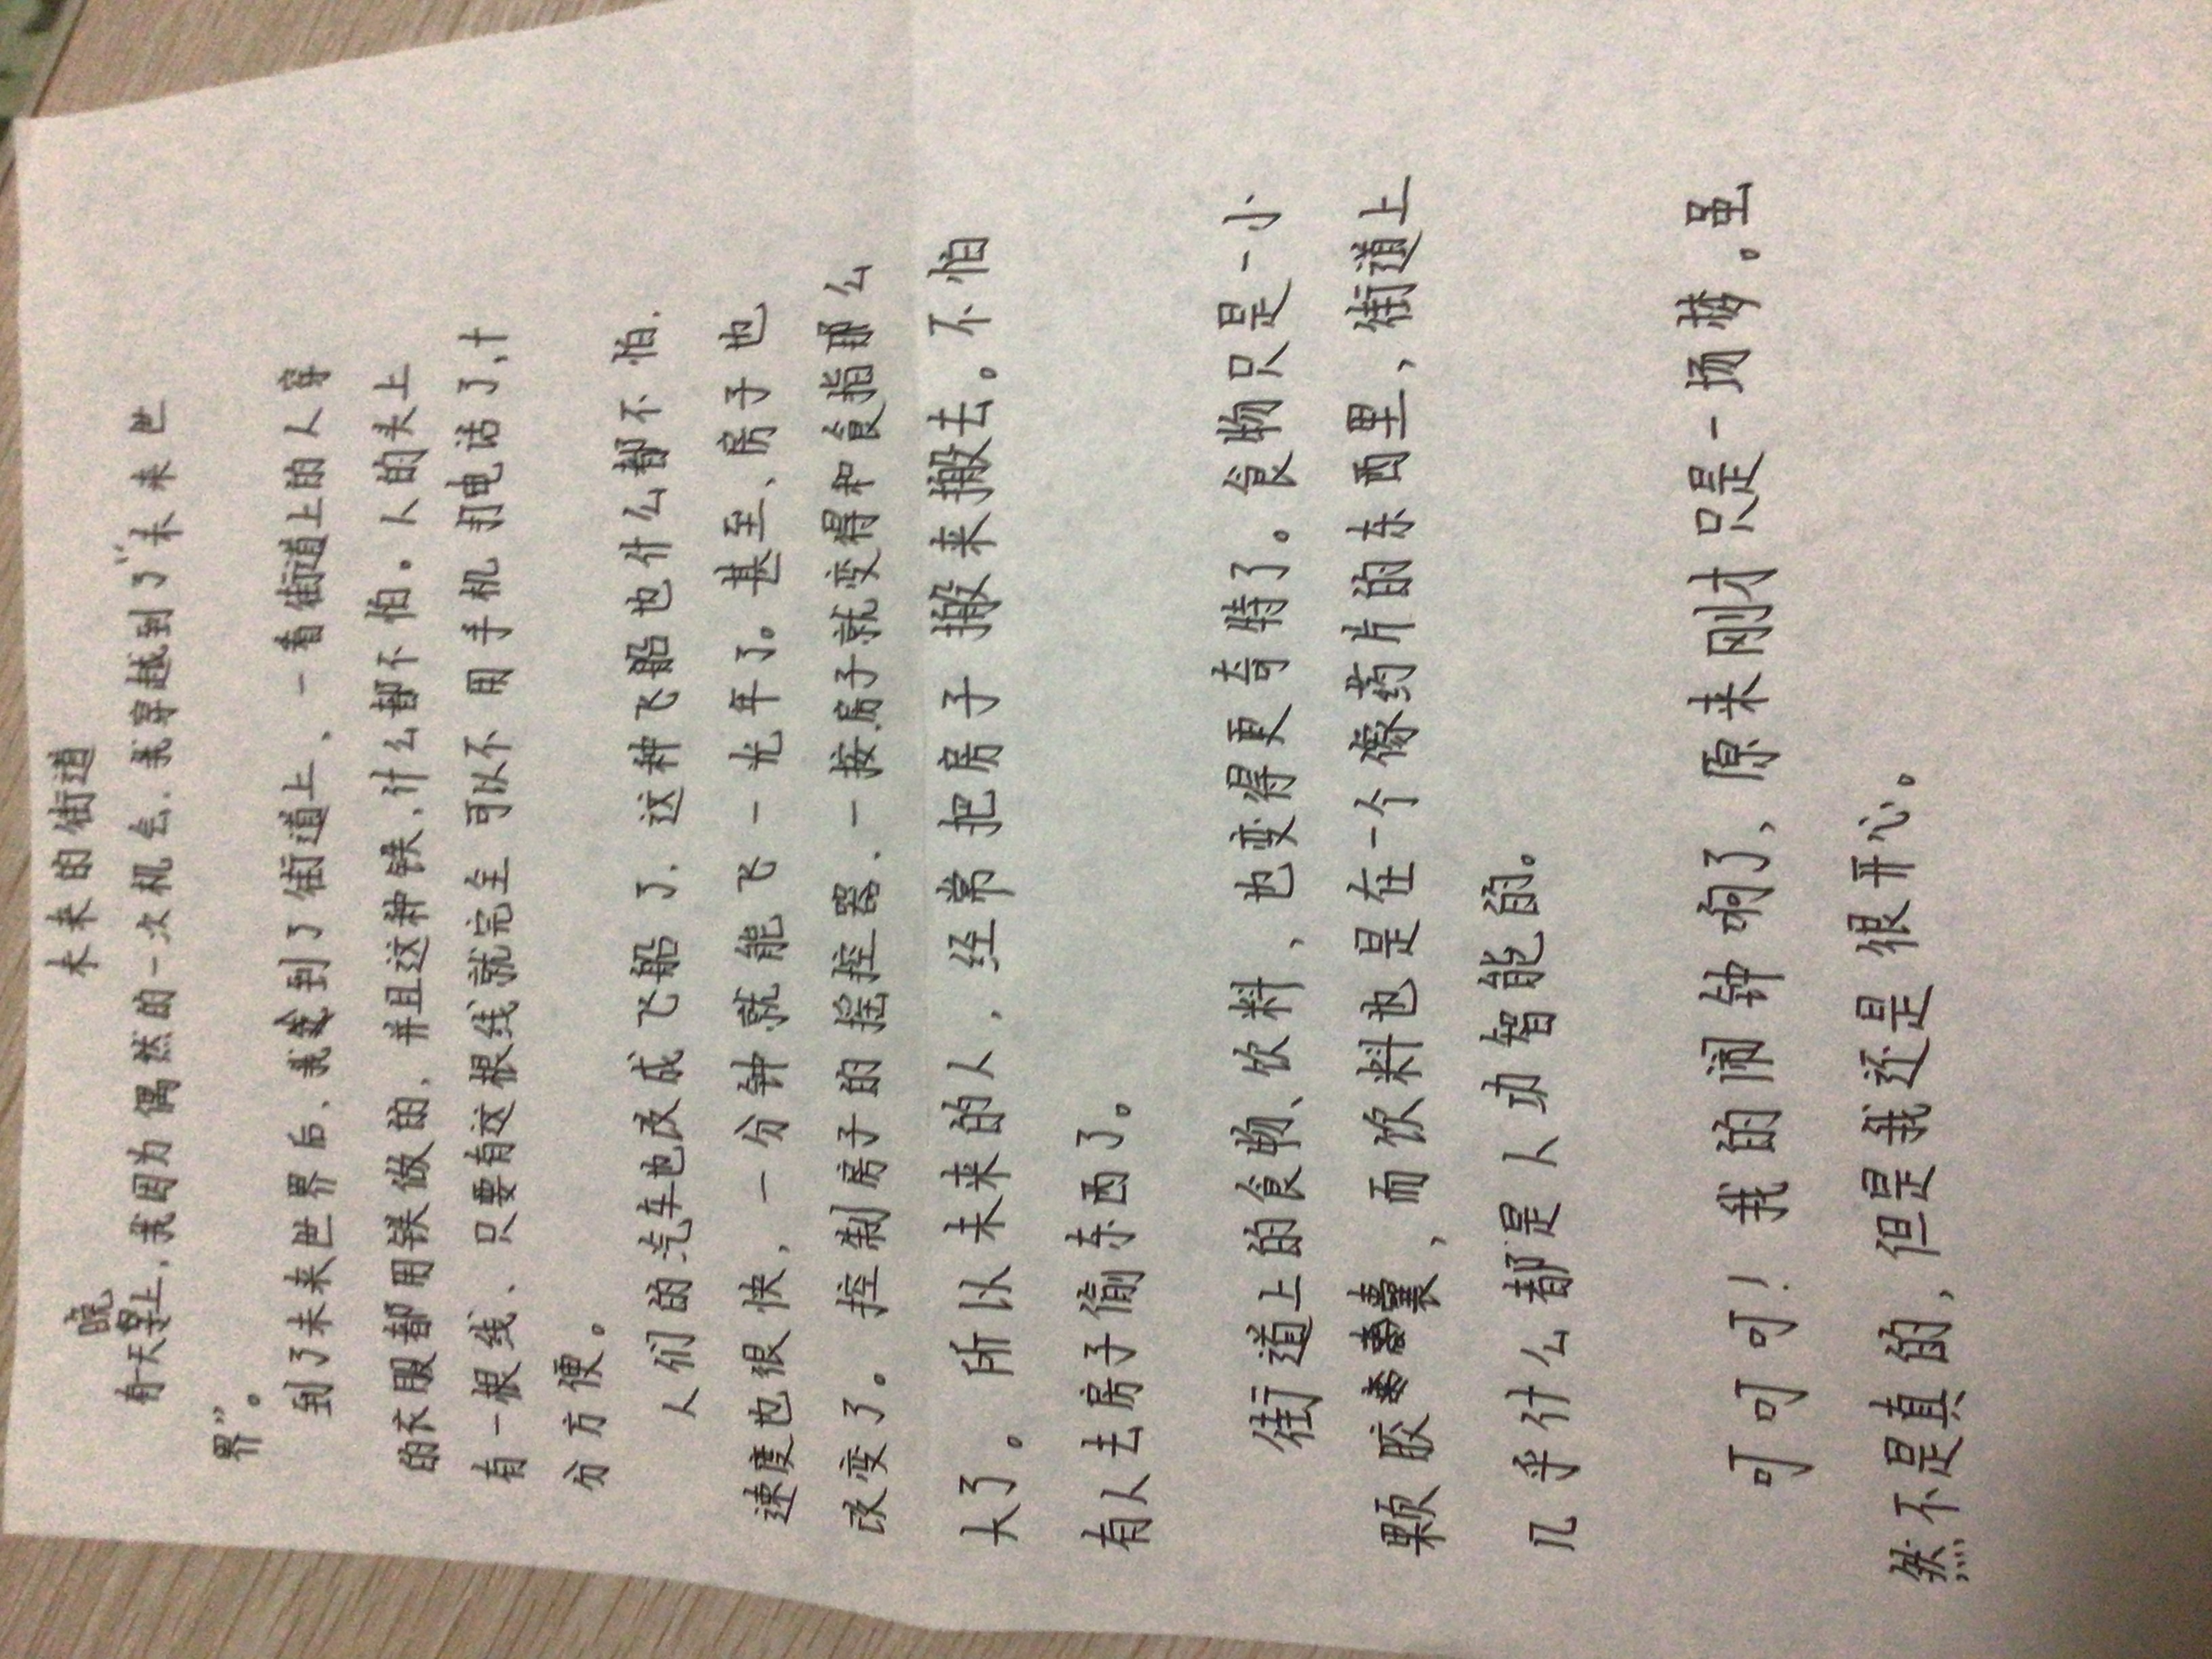 未来的街道
有天晚上，我因为偶然的一次机会，我穿越到了“未来世
界”。
到了未来世界后，我到了街道上，一看街道上的人穿
的衣服都用铁做的，并且这种铁，什么都不怕。人的头上
有一根线，只要有这根线就完全可以不用手机打电话了，十
分方便。
人们的汽车也改成飞船了，这种飞船也什么都不怕，
速度也很快，一分钟就能飞一光年了。甚至，房子也
改变了。控制房子的摇控器，一按，房子就变得和食指那么
大了。所以未来的人，经常把房子搬来搬去。不怕
有人去房子偷东西了。
街道上的食物、饮料，也变得更奇特了。食物只是一小
颗胶囊，而饮料也是在一个像药片的东西里，街道上
几乎什么都是人功智能的。
叮叮叮！我的闹钟响了，原来刚才只是一场梦。虽
然不是真的，但是我还是很开心。